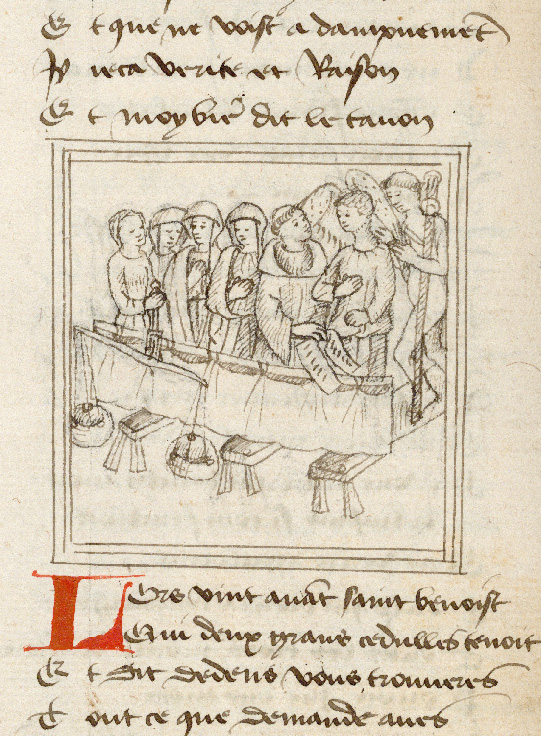 Et que ne voist a dampnement
Yci eca verite et Raison
Et moy bie᷑ dit le tauon
Lors vint auāt saint benoist
Qui deux grans cedulles tenoit
Et dit dedens vous trouueres
Tout ce que demande aues